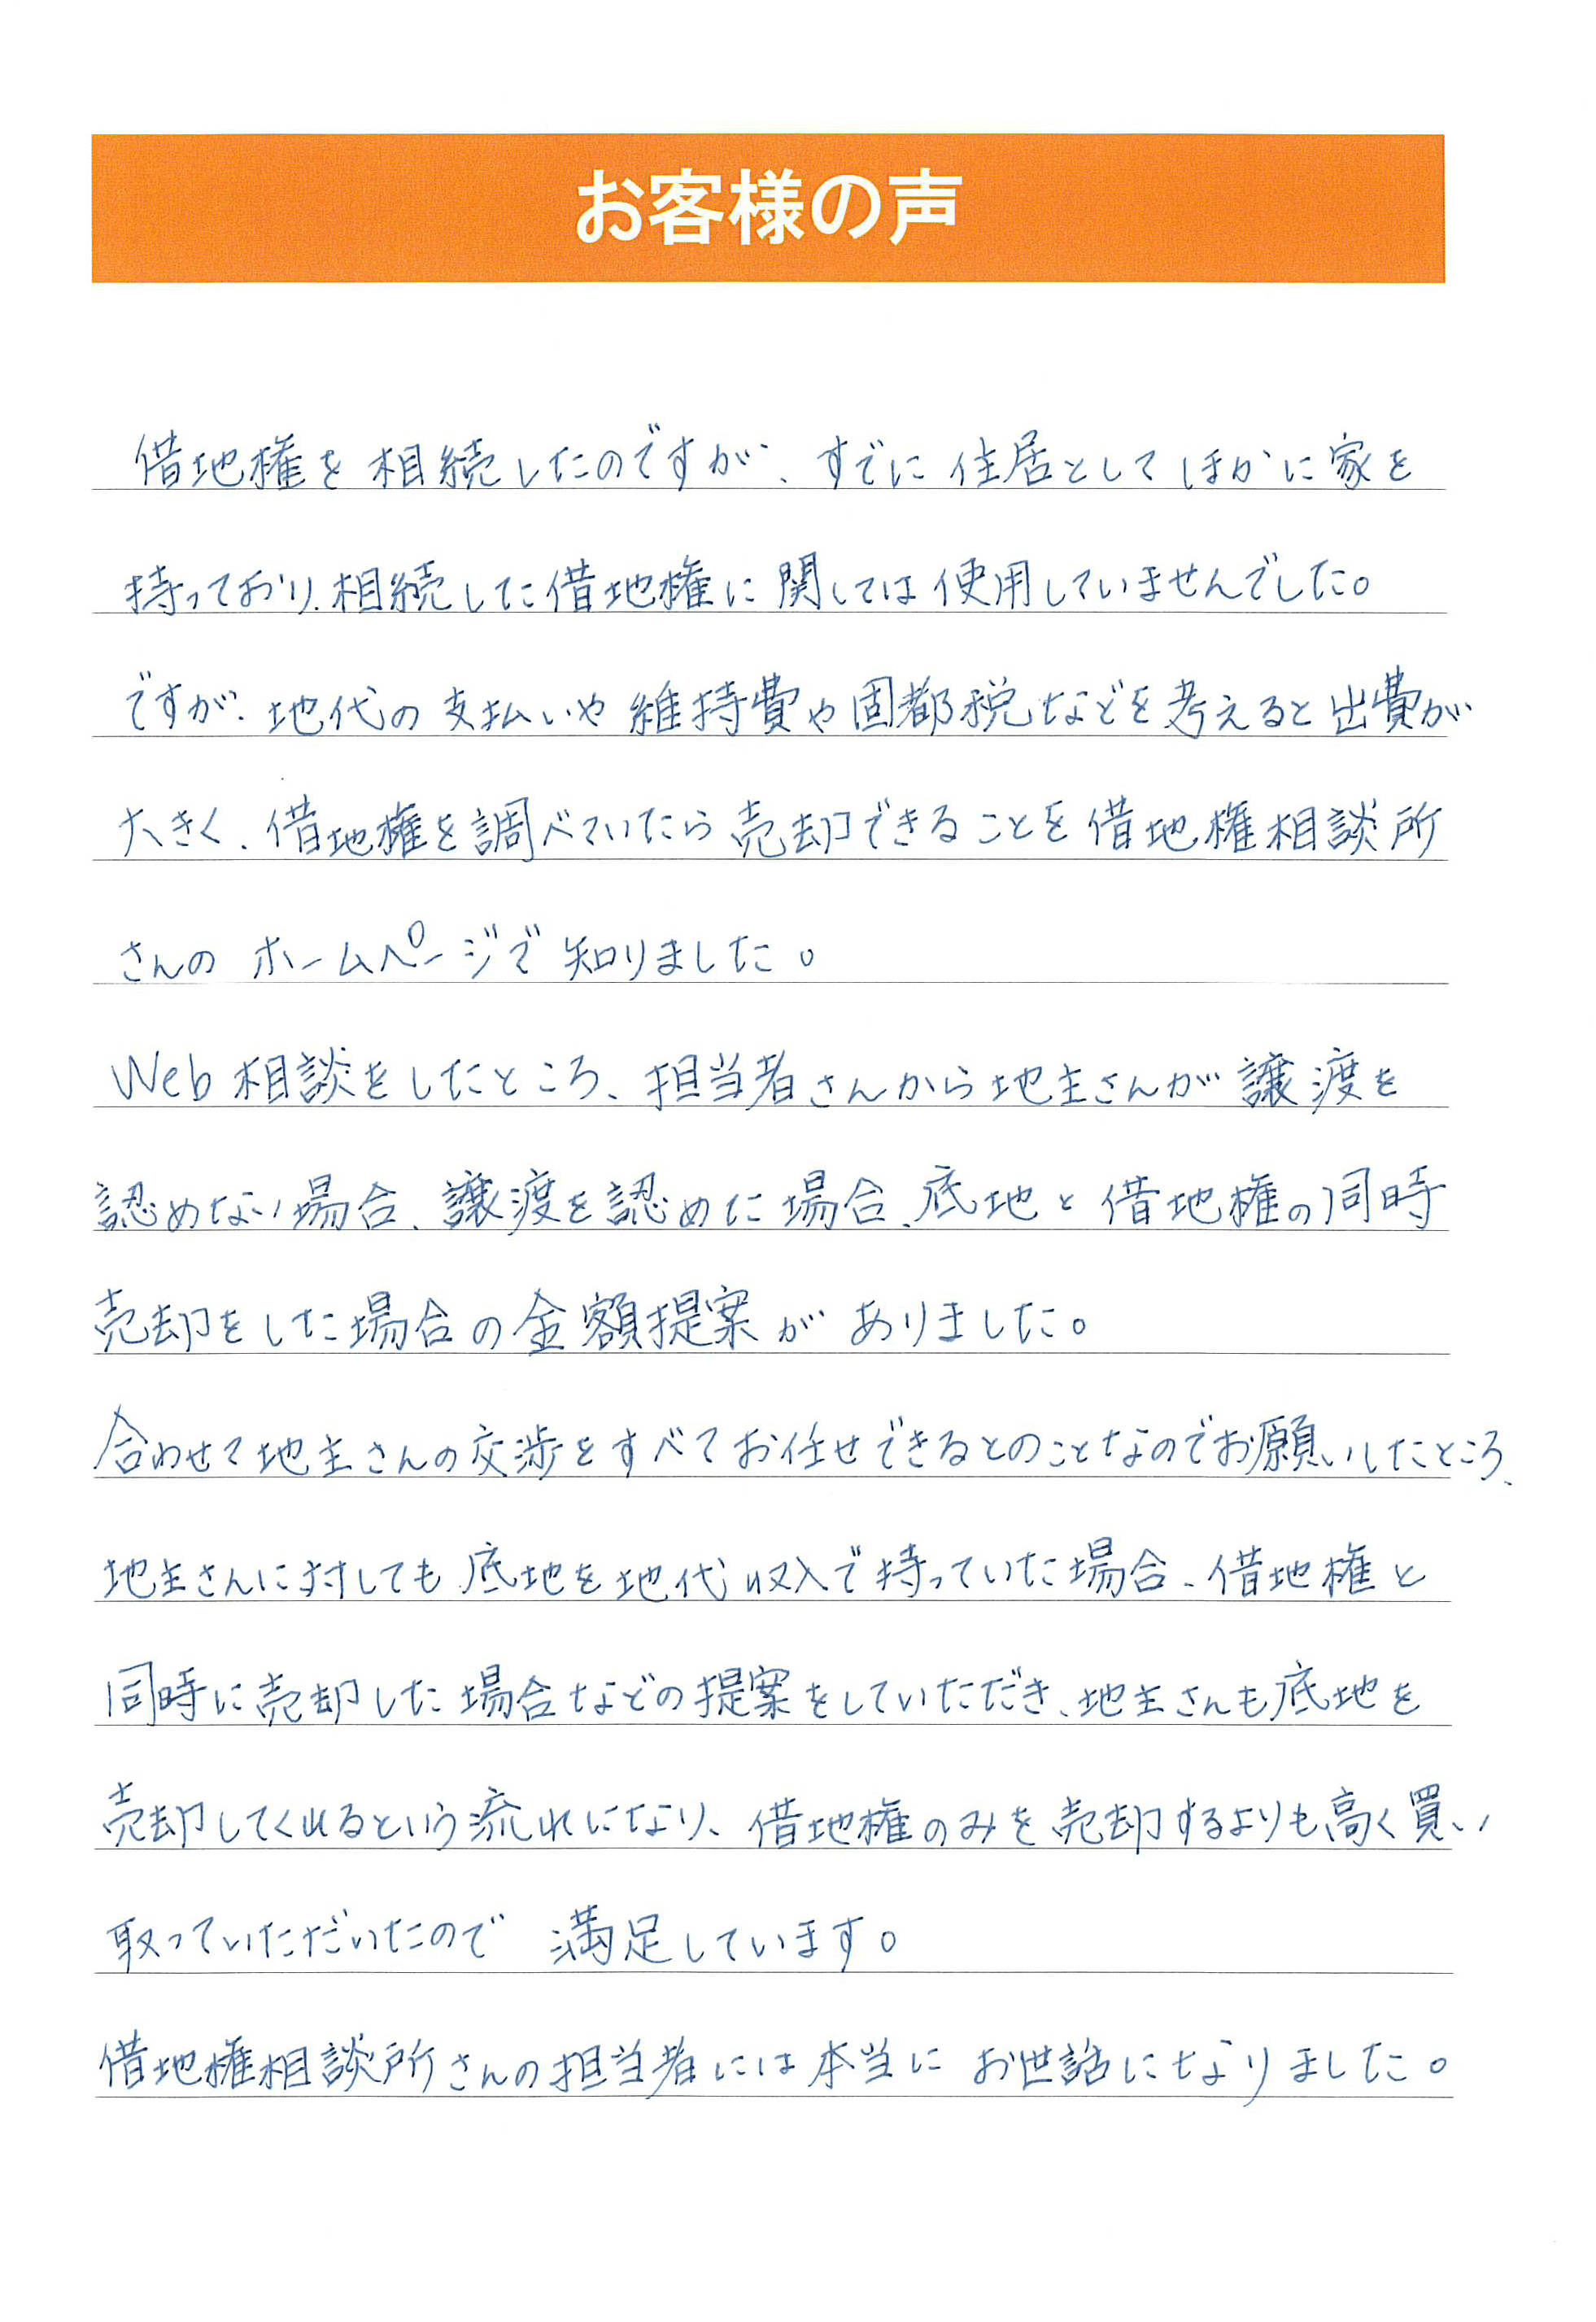 お客様の声
借地権を相続したのですが、すでに住居としてほかに家を
持っており、相続した借地権に関しては使用していませんでした。
ですが、地代の支払いや維持費や固都税などを考えると出費が
大きく、借地権を調べていたら売却できることを借地権相談所
さんのホームページで知りました。
Web相談をしたところ、担当者さんから地主さんが譲渡を
認めない場合、譲渡を認めた場合、底地と借地権の同時
売却をした場合の金額提案がありました。
合わせて地主さんの交渉をすべてお任せできるとのことなのでお願いしたところ、
地主さんに対しても底地を地代収入で持っていた場合、借地権と
同時に売却した場合などの提案をしていただき、地主さんも底地を
売却してくれるという流れになり、借地権のみを売却するよりも高く買い
取っていただいたので満足しています。
借地権相談所さんの担当者には本当にお世話になりました。